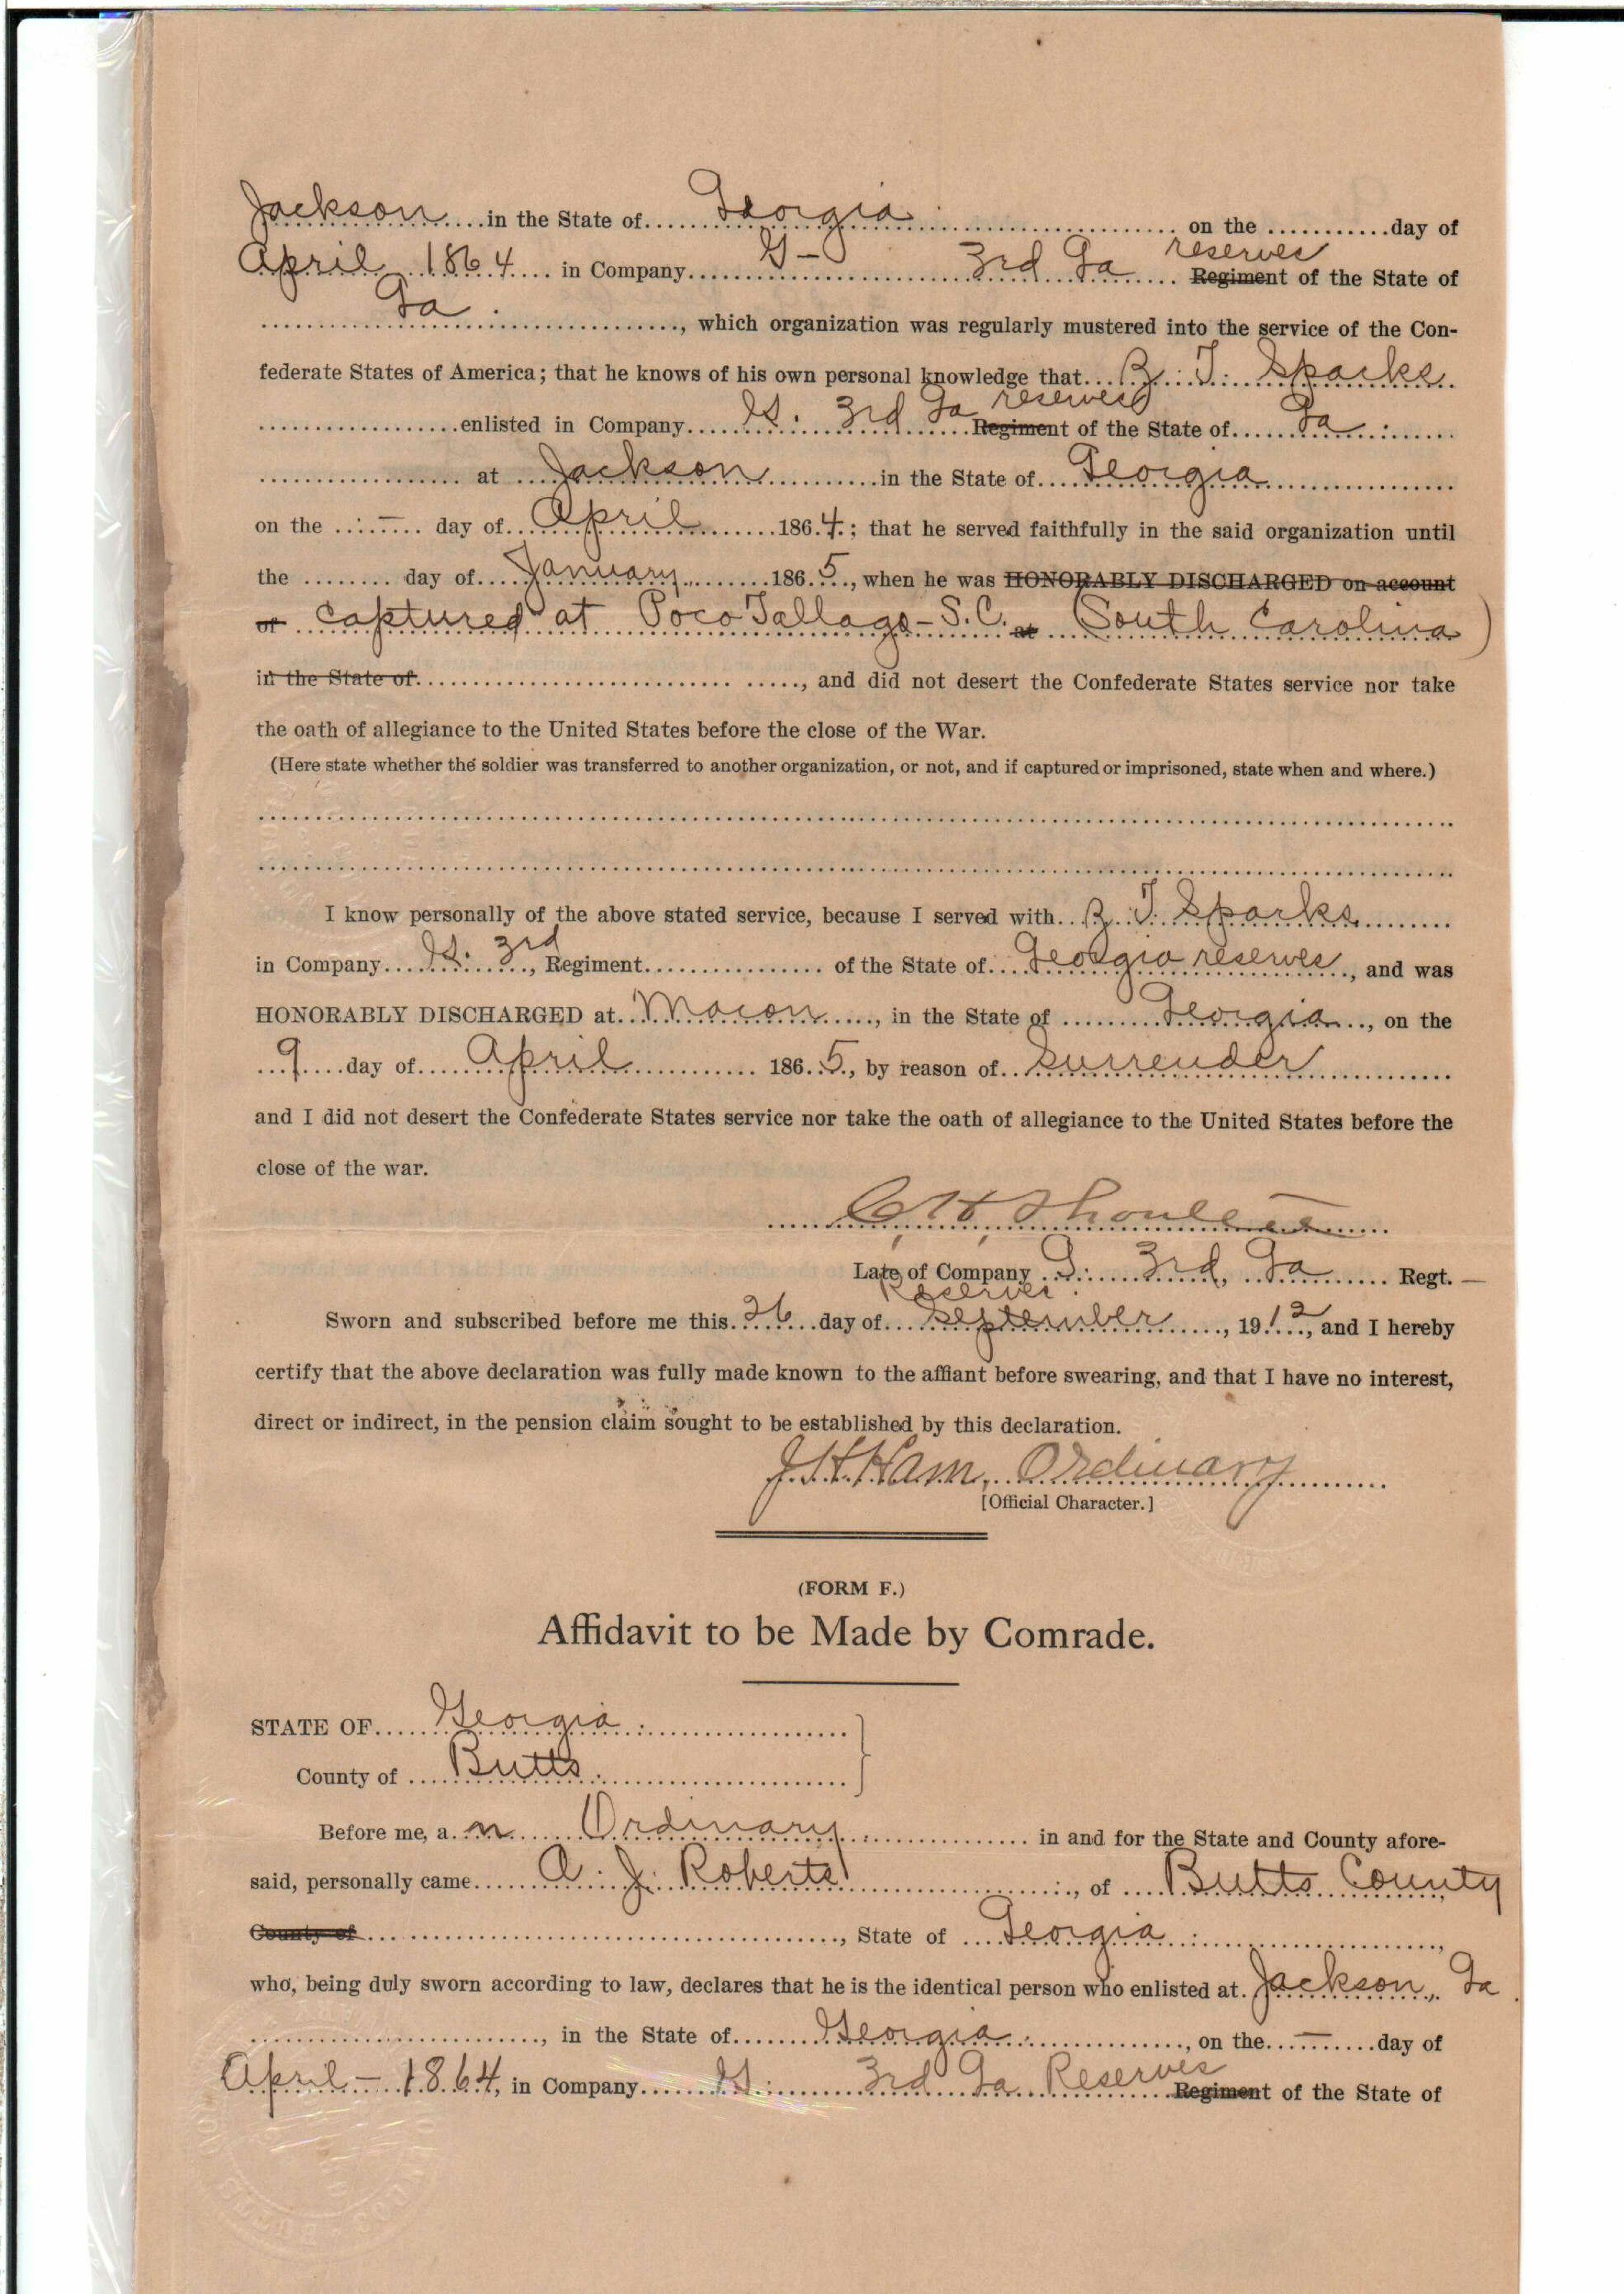 Jackson in the State of Georgia on the day of
April 1864 in Company G- 3rd Ga reserves Regiment of the State of
Ga , which organization was regularly mustered into the service of the Con-
federate States of America; that he knows of his own personal knowledge that R. T. Sparks
enlisted in Company G. 3rd Ga reserves Regiment of the State of Ga
at Jackson in the State of Georgia
on the — day of April 1864; that he served faithfully in the said organization until
the day of January 1865, when he was HONORABLY DISCHARGED on account
of captured at PocoTallago - S.C. at South Carolina)
in the State of , and did not desert the Confederate States service nor take
the oath of allegiance to the United States before the close of the War.
(Here state whether the soldier was transferred to another organization, or not, and if captured or imprisoned, state when and where.)
I know personally of the above stated service, because I served with R. T. Sparks
in Company G. 3rd, Regiment of the State of Georgia reserves, and was
HONORABLY DISCHARGED at Macon, in the State of Georgia, on the
9 day of April 1865, by reason of Surrender
and I did not desert the Confederate States service nor take the oath of allegiance to the United States before the
close of the war.
C. H.
Late of Company G. 3rd, Ga Regt. —
Reserves
Sworn and subscribed before me this 26 day of September, 1912, and I hereby
certify that the above declaration was fully made known to the affiant before swearing, and that I have no interest,
direct or indirect, in the pension claim sought to be established by this declaration.
J. H. Ham, Ordinary
[Official Character.]
(FORM F.)
Affidavit to be Made by Comrade.
STATE OF Georgia
County of Butts
Before me, a n Ordinary in and for the State and County afore-
said, personally came A. J. Roberts , of Butts County
County of , State of Georgia ,
who, being duly sworn according to law, declares that he is the identical person who enlisted at Jackson, Ga
, in the State of Georgia , on the — day of
April - 1864, in Company G. 3rd Ga Reserves Regiment of the State of